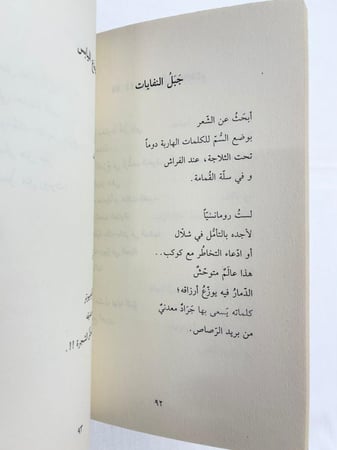 جَبَلُ النفايات
أبحَثُ عن الشّعر
بوضع السُمّ للكلمات الهاربة دوماً
تحت الثلاجة، عند الفراش
و في سلّة القُمامة.
لستُ رومانسيّاً
لأجده بالتأمّل في شلال
أو ادّعاء التخاطُر مع كوكب..
هذا عالَمٌ متوحّشٌ
الدّمارُ فيه يوزّعُ أرزاقه؛
كلماته يَسعى بها جَرَادٌ معدنيّ
من بريد الرّصاص.
٩٢
٩٣